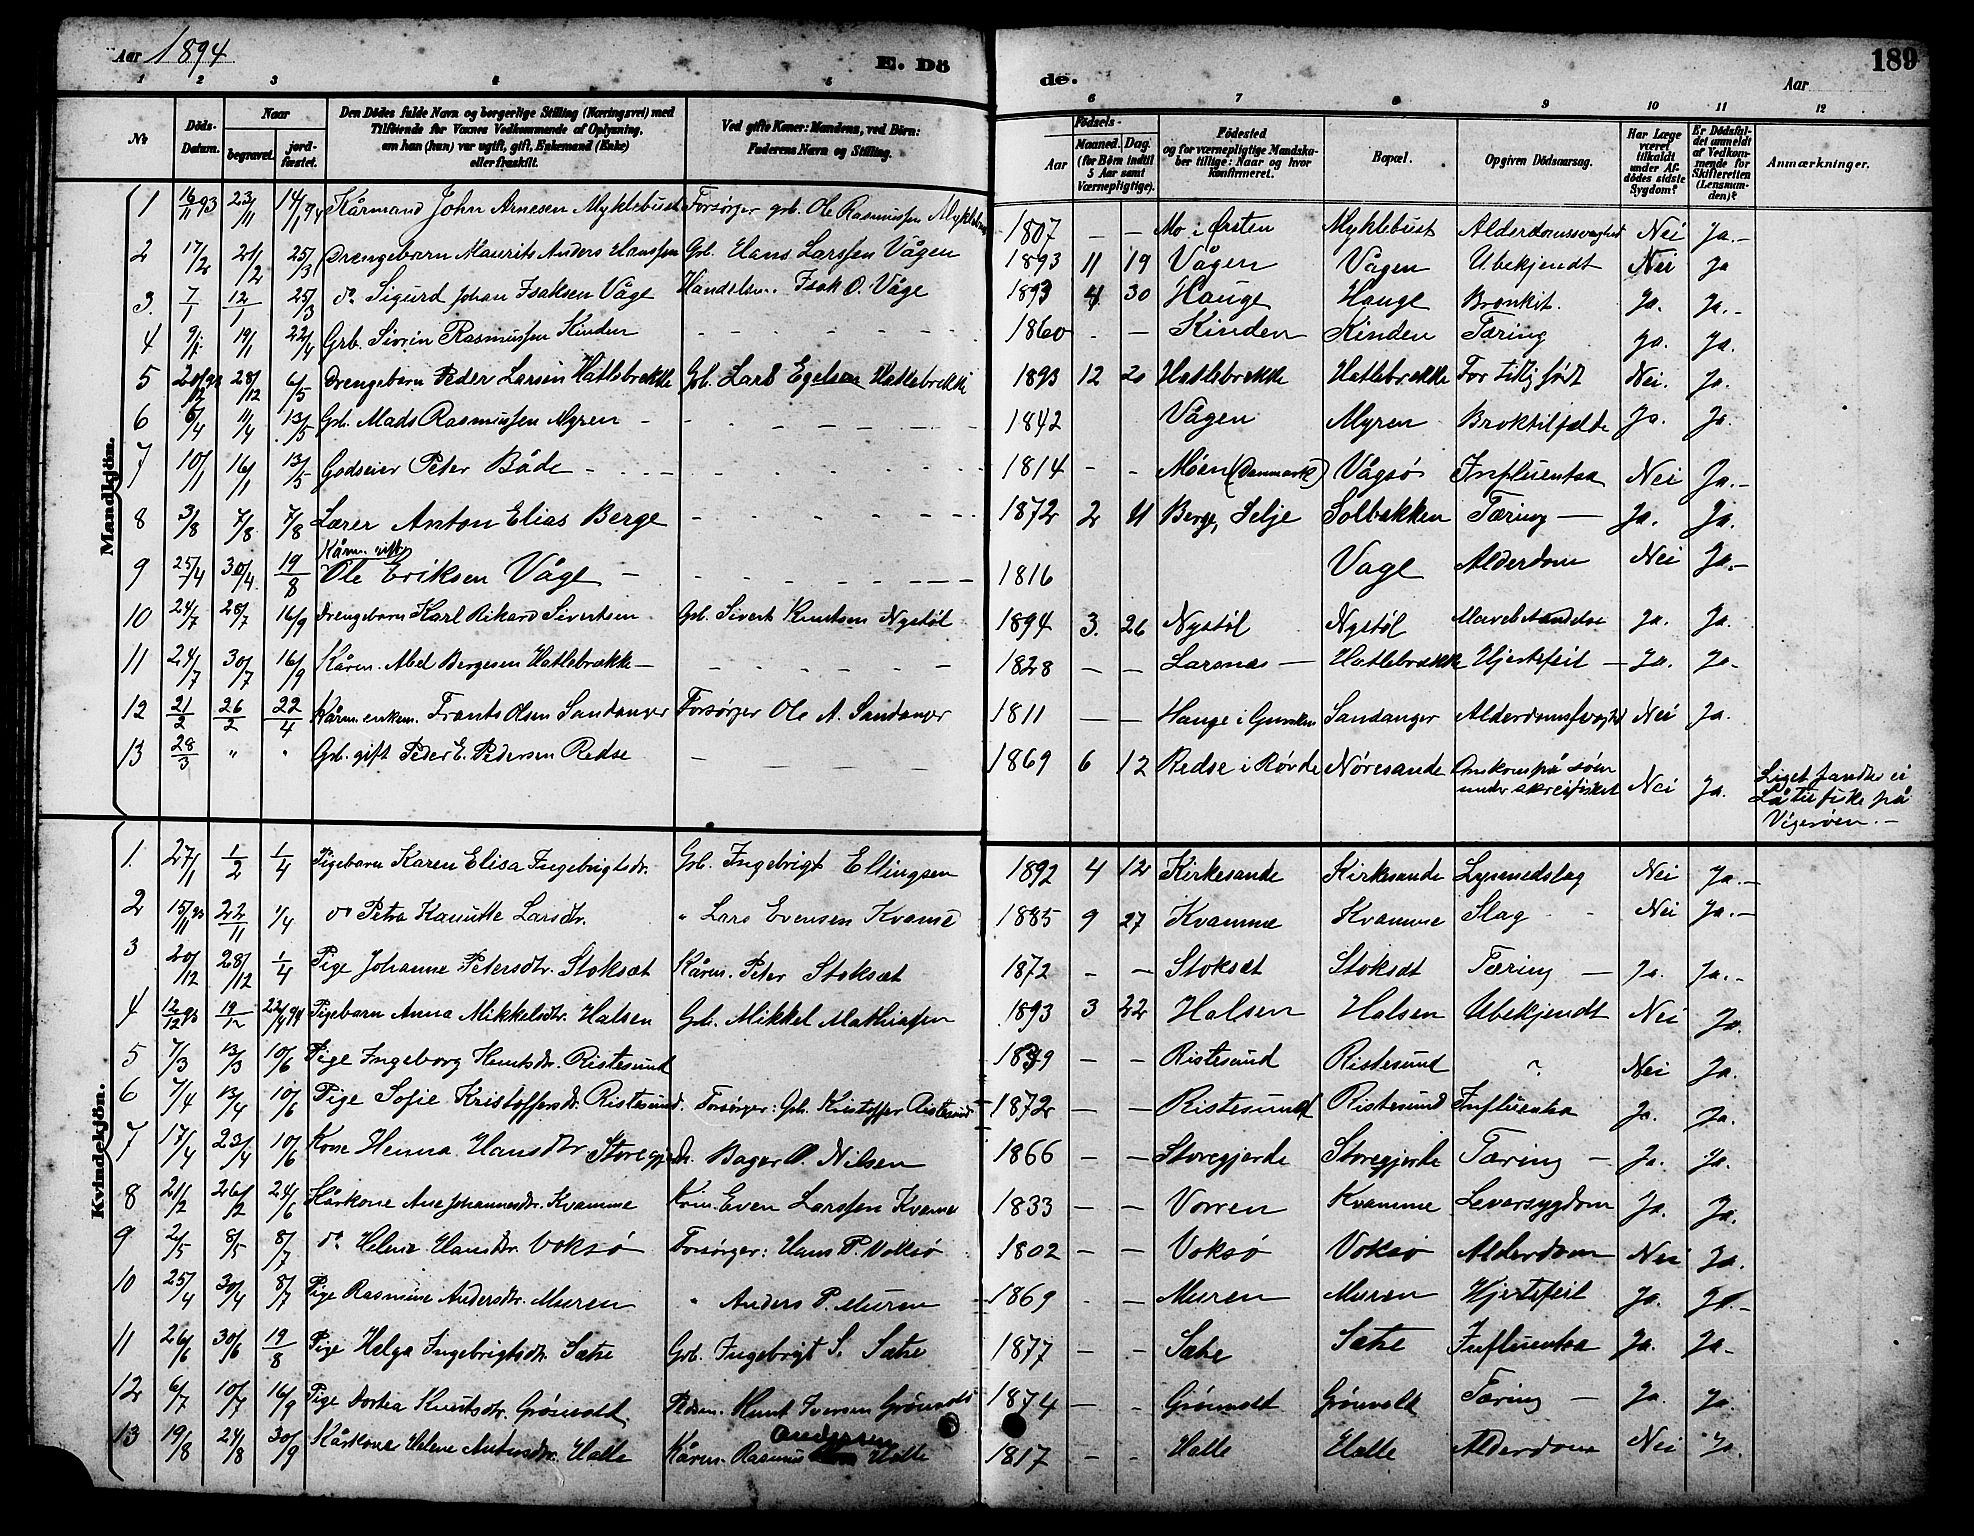 Aar 1894 E. Dö
de. Aar 189
1 2 3 4 5 6 7 8 9 10 11 12
№ Döds-Datum. Naar begravet. jordfæstet. Den Dödes fulde Navn og borgerlige Stilling (Næringsvei) med Tilföiende for Voxnes Vedkommende af Oplysning, om han (hun) var ugift, gift, Enkemand (Enke) eller fraskilt. Ved gifte Koner: Mandens, ved Börn: Faderens Navn og Stilling. Födsels- Aar Maaned. Dag. (for Börn indtil 5 Aar samt Værnepligtige). Födested og for værnepligtige Mandskaber tillige: Naar og hvor Konfirmeret. Bopæl. Opgiven Dödsaarsag. Har Læge været tilkaldt under Afdödes sidste Sygdom? Er Dödsfaldet anmeldt af Vedkommende for Skifteretten (Lensmanden)? Anmærkninger.
Mandkjön.
1 16/11 93 23/11 14/1 94 Kårmand John Arnesen Myklebust Forsörger grb. Ole Rasmussen Myklebust 1807 - - Mo i Örsten Myklebust Alderdomssvaghed Nei Ja.-
2 17/2 21/2 25/3 Drengebarn Maurits Anders Hanssen Grb. Hans Larssen Vågen 1893 11 19 Vågen Vågen Ubekjendt Nei Ja
3. 7/1 12/1 25/3 do Sigurd Johan Isaksen Våge Handelsm. Isak O. Våge 1893 4 30 Hauge Hauge Bronkit. Ja. Ja.-
4 9/1 19/1 22/4 Grb. Sivrin Rasmussen Kinden - - - 1860 - - Kinden Kinden Tæring Ja. Ja.
5 20/12 93 28/12 6/5 Drengebarn Peder Larsen Hatlebrække Grb. Lars Egelsen Hatlebrekke 1893 12 20 Hatlebrekke Hatlebrekke For tidlig født Nei. Ja.
6 6/4 11/4 13/5 Grb. Mads Rasmussen Myren - - - 1842 Vågen Myren Broktilfælde Ja. Ja.
7 10/1 16/1 13/5 Godseier Peter Både - - - 1814 - - Möen (Danmark) Vågsö Influentsa Nei Ja.-
8 3/8 7/8 7/8 Lærer Anton Elias Berge - - - 1872 2 11 Berge, Selje Solbakken Tæring - Ja. Ja.
9 25/4 30/4 19/8 Kårm. gift Ole Eriksen Våge - - - 1816 Vage Alderdom Nei Ja.-
10 24/7 28/7 16/9 Drengebarn Karl Rikard Sivertsen Grb. Sivert Knutsen Nystöl 1894 3. 26 Nystöl Nystöl Ja. Ja.
11 24/7 30/7 16/9 Kårm. Abel Bergesen Hatlebrække - - - 1828 - - Larsnes - Hatlebrække Hjertefeil - Ja. Ja-
12 21/2 26/2 22/4 Kårm. enkem. Frants Olsen Sandanger Forsörger Ole A. Sandanger 1811 - - Hauge i Gursken Sandanger Alderdomssvaghed Nei Ja.
13 28/3 " " Grb. gift Peder E. Pedersen Redse - - - 1869 6 12 Redse i Rövde Nöresande Omkom på söen under skreifisket Nei Ja. Liget fandtes ei Lå til fiske på Vigeröen.-
Kvindekjön.
1. 27/1 1/2 1/4 Pigebarn Karen Elisa Ingebrigtsdr. Grb. Ingebrigt Ellingsen 1892 4 12 Kirkesande Kirkesande Lynnedslag Nei Ja.-
2 15/11 93 22/11 1/4 do Petra Kanutte Larsdr. " Lars Evensen Kvamme 1885 9 27 Kvamme Kvamme Slag - Nei Ja.-
3 20/12 28/12 1/4 Pige Johanne Petersdr. Stoksæt Kårm. Peter Stoksæt 1872 - - Stoksæt Stoksæt Tæring - Ja. Ja.-
4 12/12 93 19/12 22/4 94 Pigebarn Anna Mikkelsdr. Halsen Grb. Mikkel Mathiassen 1893 3 22 Halsen Halsen Ubekjendt Nei Ja.
5 7/3 13/3 10/6 Pige Ingeborg Knutsdr. Ristesund - - Ristesund Ristesund ? Nei Ja.
6 7/4 13/4 10/6 Pige Sofie Kristoffersdr. Ristesund. Forsörger: Grb. Kristoffer Ristesund 1872 - - Ristesund Ristesund Influentsa Ja. Ja.
7 17/4 23/4 10/6 Kone Henna Hansdtr Storegjerde. Bager O. Nilsen 1866 - - Storegjerde Storegjerde Tæring - Ja. Ja.
8 21/2 26/2 24/6 Kårkone Ane Johannesdr. Kvamme Kårm. Even Larssen Kvamme 1833 - - Vorren Kvamme Leversygdom Ja. Ja.
9 2/5 8/5 8/7 do Helene Hansdtr. Voksö Forsörger: Hans P. Voksö 1802 - - Voksö Voksö Alderdom Nei Ja.
10 25/4 30/4 8/7 Pige Rasmine Andersdr. Muren " Anders P. Muren 1869 - - Muren Muren Hjertefeil Ja. Ja.-
11 26/6 30/6 19/8 Pige Helga Ingebrigtsdr. Sætre Grb. Ingebrigt S. Sætre 1877 - - Sætre Sætre Influentsa Ja. Ja-
12 6/7 10/7 16/9 Pige Dortea Knutsdtr. Grönvold. Pdsm. Knut Iversen Grönvold 1874 - - Grönvolt Grönvolt Tæring - Ja. Ja.
13 19/8 24/8 30/9 Kårkone Helene Antonsdr. Halle Kårm. Rasmus Andersen Halle 1817 - - Halle Halle Alderdom Nei Ja